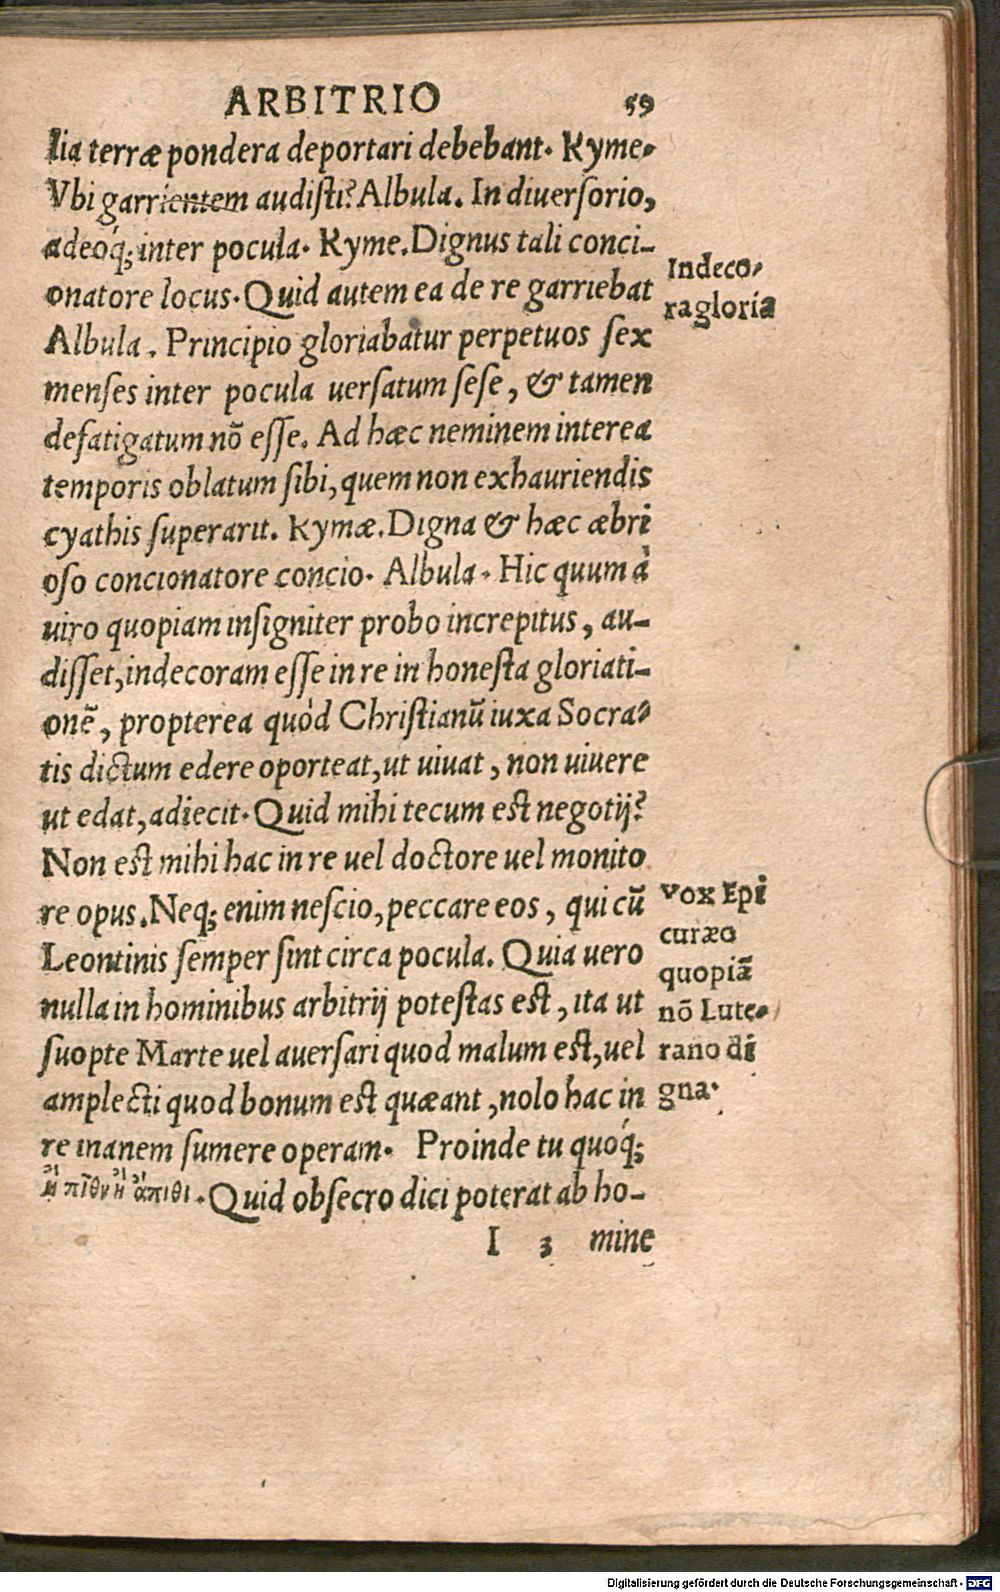 ARBITRIO 59
lia terræ pondera deportari debebant. Kyme.
Vbi garrientem audisti? Albula. In diuersorio,
adeoq́; inter pocula. Kyme. Dignus tali conci-
onatore locus. Quid autem ea de re garriebat
Indeco-
ra gloria
Albula. Principio gloriabatur perpetuos sex
menses inter pocula uersatum sese, & tamen
defatigatum nõ esse. Ad hæc neminem interea
temporis oblatum sibi, quem non exhauriendis
cyathis superarit. Kymæ. Digna & hæc æbri
oso concionatore concio. Albula. Hic quum à
uiro quopiam insigniter probo increpitus, au-
disset, indecoram esse in re in honesta gloriati-
onẽ, propterea quòd Christianũ iuxa Socra-
tis dictum edere oporteat, ut uiuat, non uiuere
ut edat, adiecit. Quid mihi tecum est negotij?
Non est mihi hac in re uel doctore uel monito
re opus. Neq; enim nescio, peccare eos, qui cũ
Leontinis semper sint circa pocula. Quia uero
nulla in hominibus arbitrij potestas est, ita ut
suopte Marte uel auersari quod malum est, uel
amplecti quod bonum est quæant, nolo hac in
re inanem sumere operam. Proinde tu quoq́;
Vox Epi
curæo
quopiã
nõ Lute-
rano di
gna.
ἢ πῖθι ἢ ἄπιθι. Quid obsecro dici poterat ab ho-
I 3 mine
Digitalisierung gefördert durch die Deutsche Forschungsgemeinschaft - DFG